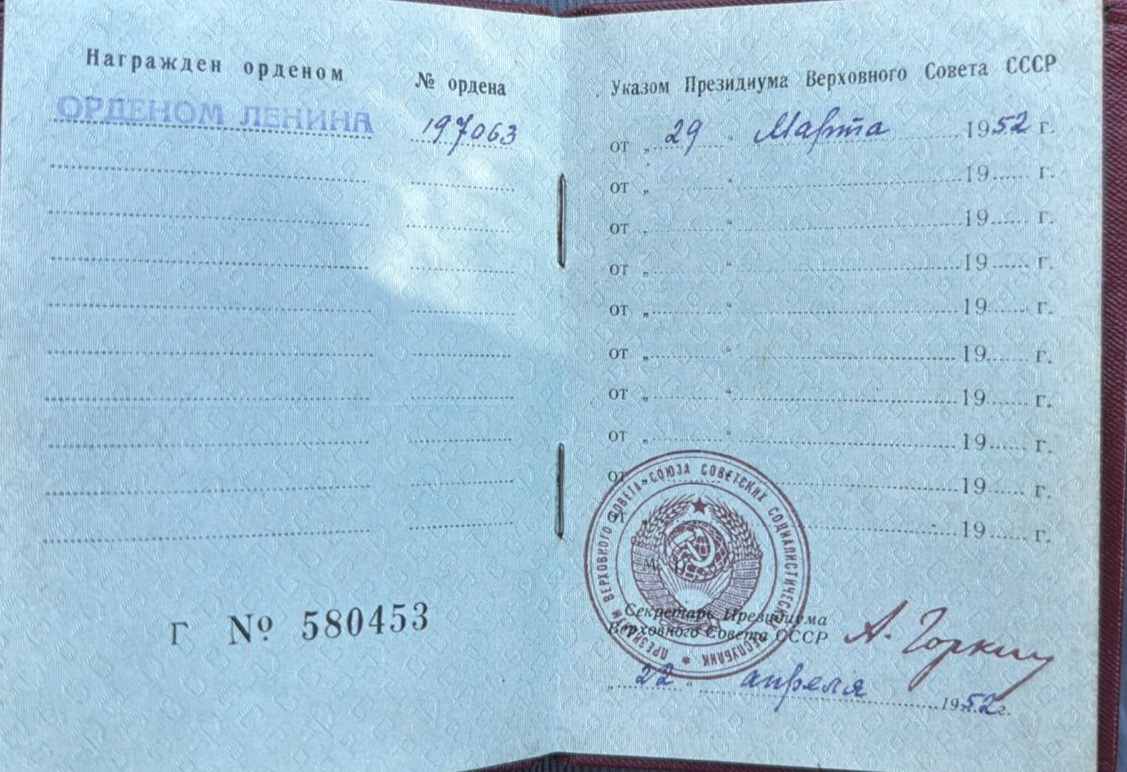 Награжден орденом
№ ордена
ОРДЕНОМ ЛЕНИНА
197063
Г № 580453
Указом Президиума Верховного Совета СССР
от „29" Марта 1952 г.
от „ " 19 г.
от „ " 19 г.
от „ " 19 г.
от „ " 19 г.
от „ " 19 г.
от „ " 19 г.
от „ " 19 г.
от „ " 19 г.
от „ " 19 г.
ПРЕЗИДИУМ ВЕРХОВНОГО СОВЕТА СОЮЗА СОВЕТСКИХ СОЦИАЛИСТИЧЕСКИХ РЕСПУБЛИК
Секретарь Президиума
Верховного Совета СССР
А. Горкин
„22" апреля 1952 г.